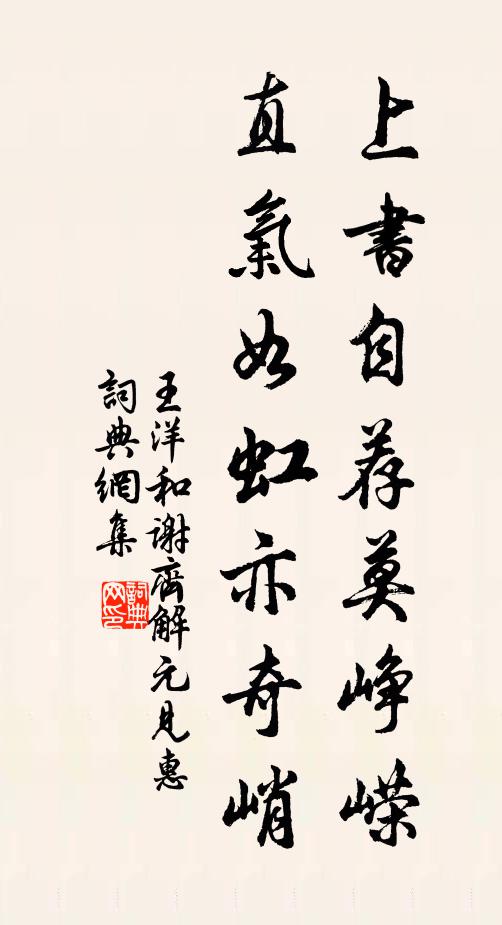 上書自荐莫峥嶸
直氣如虹亦奇峭
王洋和谢齊解元見惠
詞典網集
詞典网印